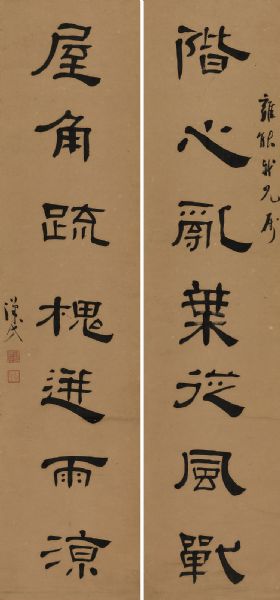 雍能 兄屬
階心亂葉從風戰
屋角疏槐迸雨涼
漢民